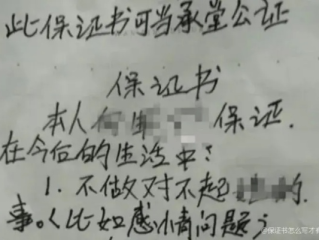 此保证书可当承堂公证
保证书
本人 保证.
在今后的生活中:
1. 不做对不起 的
事。(比如感情问题)